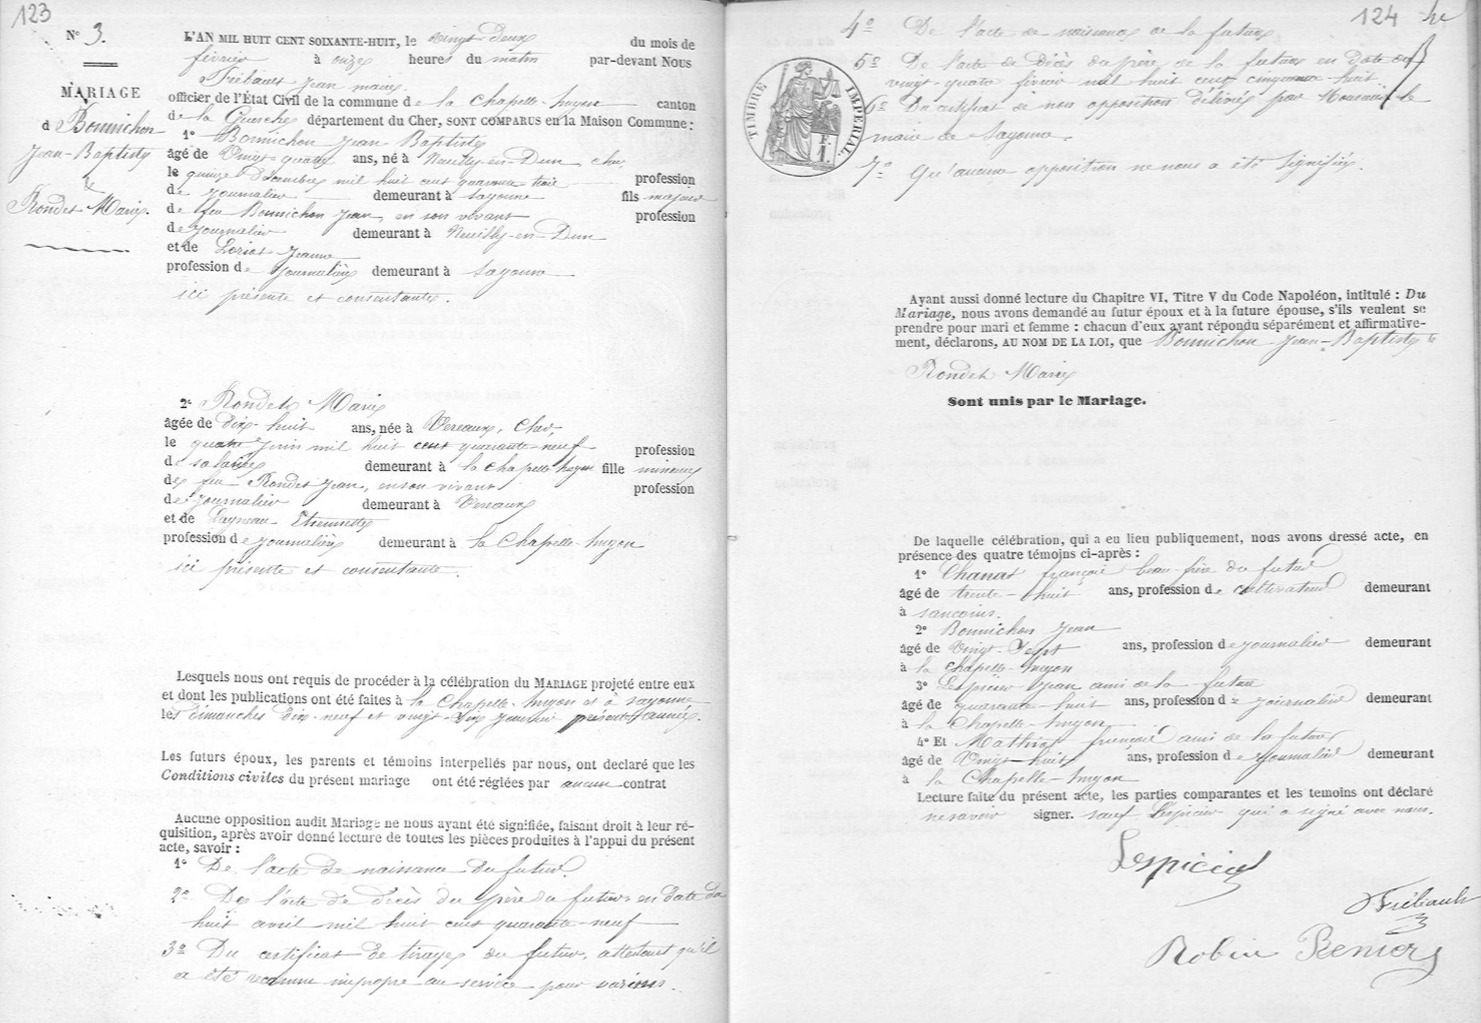 123
N° 3.
MARIAGE
d Bonnichon
Jean-Baptiste
&
Rondet Marie.
L'AN MIL HUIT CENT SOIXANTE-HUIT, le vingt-deux du mois de
février à onze heures du matin par-devant Nous
Trébault Jean maire
officier de l'État Civil de la commune de la Chapelle-hugon canton
de la Guerche département du Cher, SONT COMPARUS en la Maison Commune :
1° Bonnichon Jean Baptiste
âgé de Vingt-quatre ans, né à Neuilly-en-Dun cher,
le quinze Décembre mil huit cent quarante trois profession
de journalier demeurant à Sagonne fils majeur
de feu Bonnichon Jean, en son vivant profession
de journalier demeurant à Neuilly-en-Dun
et de Loriot Jeanne
profession de journalière demeurant à Sagonne
ici présente et consentante.
2° Rondet Marie
âgée de dix-huit ans, née à Vereaux, Cher,
le quatre juin mil huit cent quarante-neuf profession
de salariée demeurant à la Chapelle hugon fille mineure
de feu Rondet Jean, en son vivant profession
de journalier demeurant à Vereaux
et de Etiennette
profession de journalière demeurant à la Chapelle-hugon
ici présente et consentante.
Lesquels nous ont requis de procéder à la célébration du MARIAGE projeté entre eux
et dont les publications ont été faites à la Chapelle-hugon et à Sagonne
les dimanches dix-neuf et vingt-six janvier présent année.
Les futurs époux, les parents et témoins interpellés par nous, ont declaré que les
Conditions civiles du présent mariage ont été réglées par aucun contrat
Aucune opposition audit Mariage ne nous ayant été signifiée, faisant droit à leur ré-
quisition, après avoir donné lecture de toutes les pièces produites à l'appui du présent
acte, savoir :
1° De l'acte de naissance du futur.
2° De l'acte de décès du père du futur en date du
huit avril mil huit cent quarante-neuf
3° Du certificat de tirage du futur, attestant qu'il
a été reconnu impropre au service pour varices.
124
4° De l'acte de naissance de la future
5° De l'acte de décès du père de la future en date du
vingt-quatre février mil huit cent cinquante-huit
6° Du certificat de non opposition délivré par Monsieur le
maire de Sagonne.
7° Qu'aucune opposition ne nous a été signifiée.
TIMBRE IMPERIAL.
F. 1.
Ayant aussi donné lecture du Chapitre VI, Titre V du Code Napoléon, intitulé : Du
Mariage, nous avons demandé au futur époux et à la future épouse, s'ils veulent se
prendre pour mari et femme : chacun d'eux ayant répondu séparément et affirmative-
ment, déclarons, AU NOM DE LA LOI, que Bonnichon Jean-Baptiste &
Rondet Marie
Sont unis par le Mariage.
De laquelle célébration, qui a eu lieu publiquement, nous avons dressé acte, en
présence des quatre témoins ci-après :
1° Chanat françois beau-frère du futur
âgé de trente-huit ans, profession de cultivateur demeurant
à Sancoins.
2° Bonnichon Jean
âgé de Vingt-Sept ans, profession de journalier demeurant
à la Chapelle-hugon
3° Lespicier Jean ami de la future
âgé de quarante-huit ans, profession de journalier demeurant
à la Chapelle-hugon
4° Et Mathiot françois ami de la future
âgé de Vingt-huit ans, profession de journalier demeurant
à la Chapelle-hugon
Lecture faite du présent acte, les parties comparantes et les temoins ont déclaré
ne savoir signer. sauf Lespicier qui a signé avec nous.
Lespicier
Trébault
Robin Renier